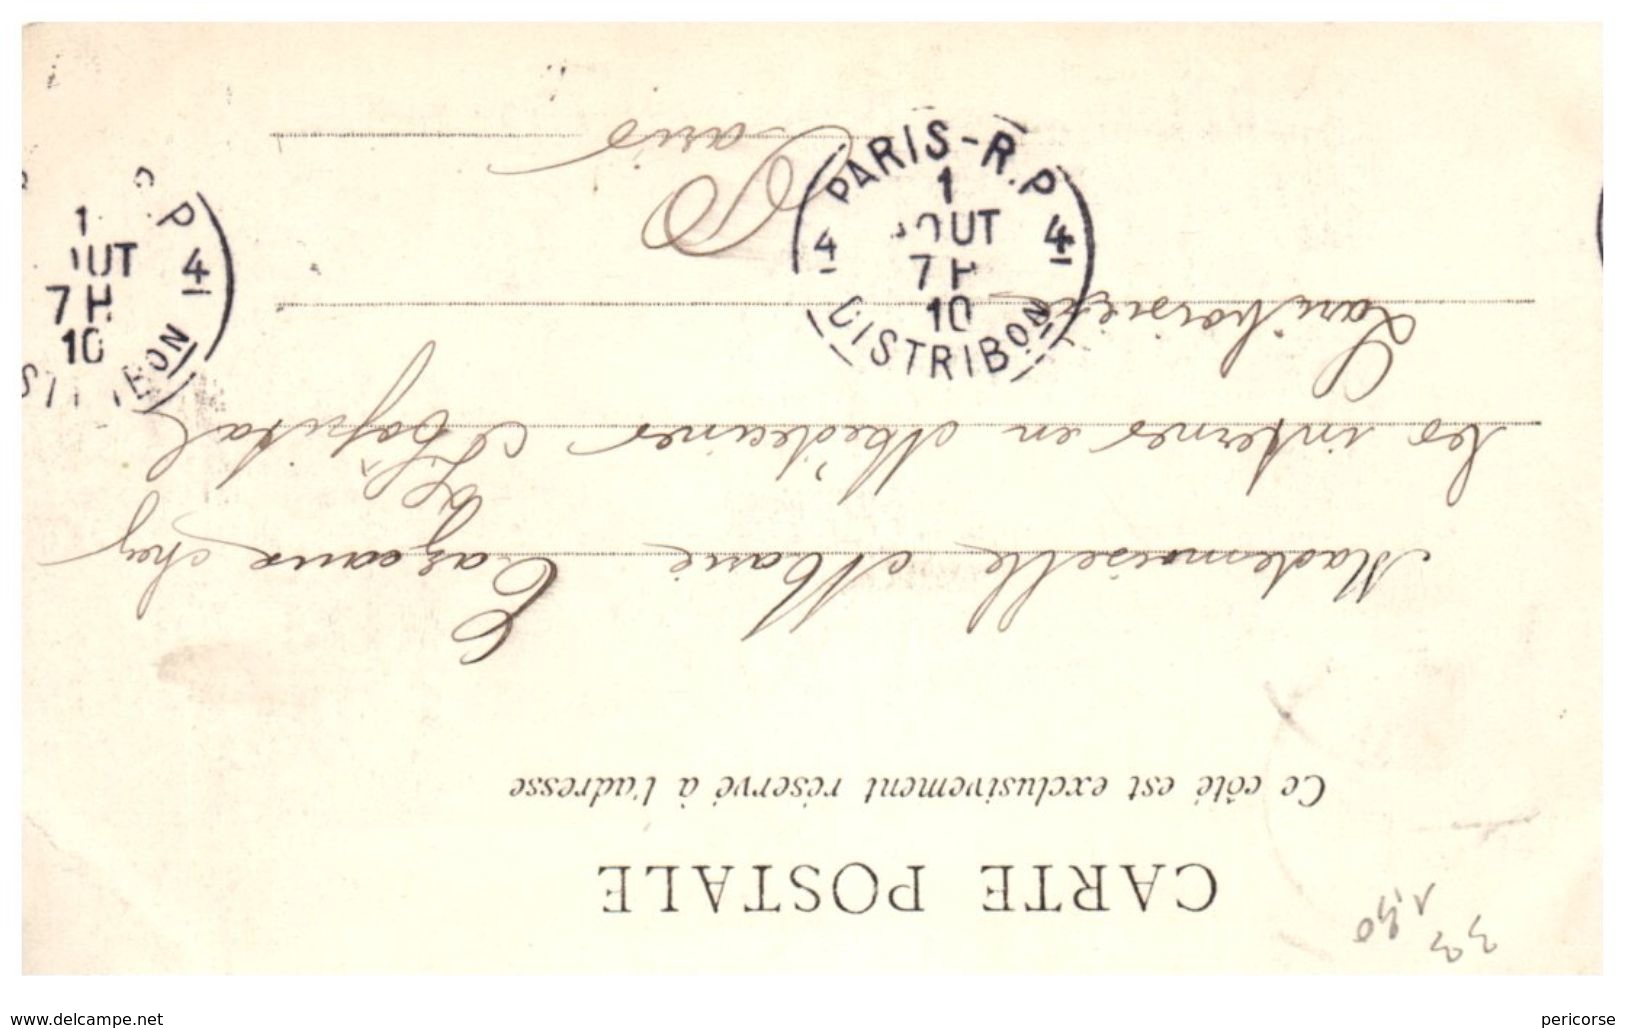 CARTE POSTALE
Ce côté est exclusivement réservé à l'adresse
Mademoiselle Marie Cazeaux chez
les internes en Médecines Hôpital
Lariboisière
Paris
PARIS-R.P
4 4
1
AOUT
7 H
10
DISTRIBON
R.P
4
1
OUT
7 H
10
STRIBON
33
1,50
www.delcampe.net
pericorse